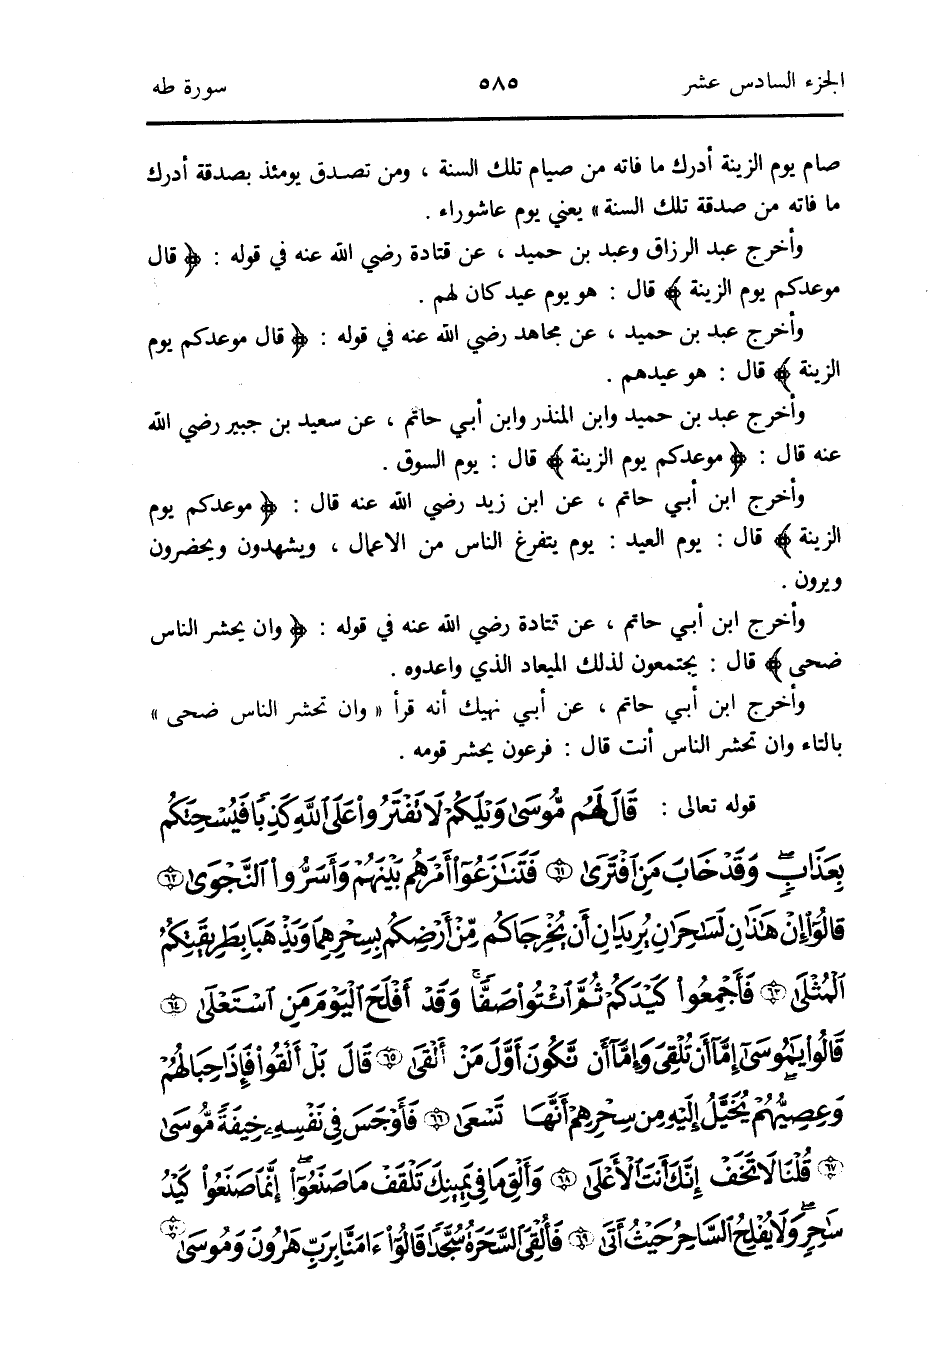 الجزء السادس عشر ٥٨٥ سورة طه
صام يوم الزينة أدرك ما فاته من صيام تلك السنة ، ومن تصدق يومئذ بصدقة أدرك
ما فاته من صدقة تلك السنة » يعني يوم عاشوراء .
وأخرج عبد الرزاق وعبد بن حميد ، عن قتادة رضي الله عنه في قوله : ﴿ قال
موعدكم يوم الزينة ﴾ قال : هو يوم عيد كان لهم .
وأخرج عبد بن حميد ، عن مجاهد رضي الله عنه في قوله : ﴿ قال موعدكم يوم
الزينة ﴾ قال : هو عيدهم .
وأخرج عبد بن حميد وابن المنذر وابن أبي حاتم ، عن سعيد بن جبير رضي الله
عنه قال : ﴿ موعدكم يوم الزينة ﴾ قال : يوم السوق .
وأخرج ابن أبي حاتم ، عن ابن زيد رضي الله عنه قال : ﴿ موعدكم يوم
الزينة ﴾ قال : يوم العيد : يوم يتفرغ الناس من الاعمال ، ويشهدون ويحضرون
ويرون .
وأخرج ابن أبي حاتم ، عن قتادة رضي الله عنه في قوله : ﴿ وان يحشر الناس
ضحى ﴾ قال : يجتمعون لذلك الميعاد الذي واعدوه .
وأخرج ابن أبي حاتم ، عن أبي نهيك أنه قرأ « وان تحشر الناس ضحى »
بالتاء وان تحشر الناس أنت قال : فرعون يحشر قومه .
قوله تعالى : قَالَ لَهُم مُّوسَىٰ وَيْلَكُمْ لَا تَفْتَرُوا۟ عَلَى ٱللَّهِ كَذِبًا فَيُسْحِتَكُم
بِعَذَابٍ ۖ وَقَدْ خَابَ مَنِ ٱفْتَرَىٰ ٦١ فَتَنَٰزَعُوٓا۟ أَمْرَهُم بَيْنَهُمْ وَأَسَرُّوا۟ ٱلنَّجْوَىٰ ٦٢
قَالُوٓا۟ إِنْ هَٰذَٰنِ لَسَٰحِرَٰنِ يُرِيدَانِ أَن يُخْرِجَاكُم مِّنْ أَرْضِكُم بِسِحْرِهِمَا وَيَذْهَبَا بِطَرِيقَتِكُمُ
ٱلْمُثْلَىٰ ٦٣ فَأَجْمِعُوا۟ كَيْدَكُمْ ثُمَّ ٱئْتُوا۟ صَفًّا ۚ وَقَدْ أَفْلَحَ ٱلْيَوْمَ مَنِ ٱسْتَعْلَىٰ ٦٤
قَالُوا۟ يَٰمُوسَىٰٓ إِمَّآ أَن تُلْقِىَ وَإِمَّآ أَن نَّكُونَ أَوَّلَ مَنْ أَلْقَىٰ ٦٥ قَالَ بَلْ أَلْقُوا۟ ۖ فَإِذَا حِبَالُهُمْ
وَعِصِيُّهُمْ يُخَيَّلُ إِلَيْهِ مِن سِحْرِهِمْ أَنَّهَا تَسْعَىٰ ٦٦ فَأَوْجَسَ فِى نَفْسِهِۦ خِيفَةً مُّوسَىٰ
٦٧ قُلْنَا لَا تَخَفْ إِنَّكَ أَنتَ ٱلْأَعْلَىٰ ٦٨ وَأَلْقِ مَا فِى يَمِينِكَ تَلْقَفْ مَا صَنَعُوٓا۟ ۖ إِنَّمَا صَنَعُوا۟ كَيْدُ
سَٰحِرٍ ۖ وَلَا يُفْلِحُ ٱلسَّاحِرُ حَيْثُ أَتَىٰ ٦٩ فَأُلْقِىَ ٱلسَّحَرَةُ سُجَّدًا قَالُوٓا۟ ءَامَنَّا بِرَبِّ هَٰرُونَ وَمُوسَىٰ ٧٠